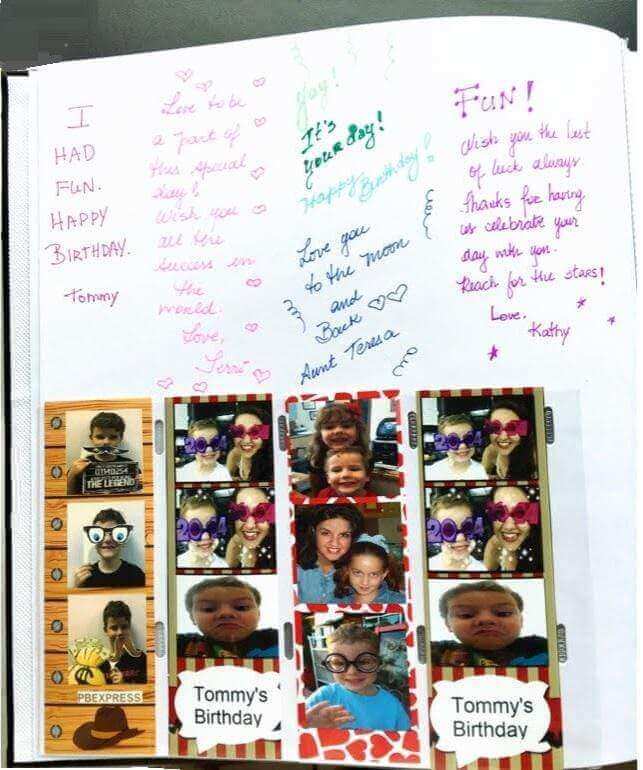 I
HAD
FUN.
HAPPY
BIRTHDAY.
Tommy
Love to be
a part of
this special
day!
Wish you
all the
success in
the
world.
Love,
Terri
Yay!
It's
your day!
Happy Birthday!
Love you
to the moon
and
Back
Aunt Teresa
FUN!
Wish you the best
of luck always
Thanks for having
us celebrate your
day with you.
Reach for the stars!
Love,
Kathy
THE LEGEND
PBEXPRESS
2014
2014
Tommy's
Birthday
2014
2014
Tommy's
Birthday